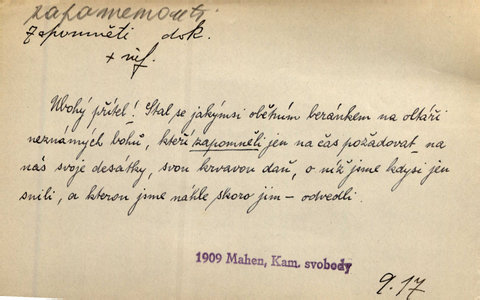 zapomenouti
Zapomněti dok.
+ inf.
Ubohý přítel! Stal se jakýmsi obětním beránkem na oltáři
neznámých bohů, kteří zapomněli jen na čas požadovat na
nás svoje desátky, svou krvavou daň, o níž jsme kdysi jen
snili, a kterou jsme náhle skoro jim – odvedli.
1909 Mahen, Kam. svobody
9.17